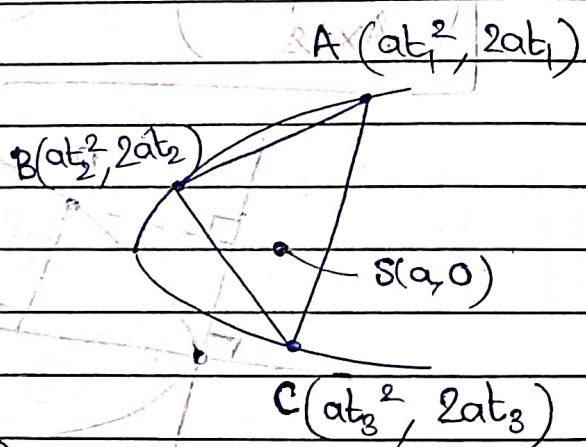 A (at₁², 2at₁)
B(at₂², 2at₂)
S(a,0)
C(at₃², 2at₃)